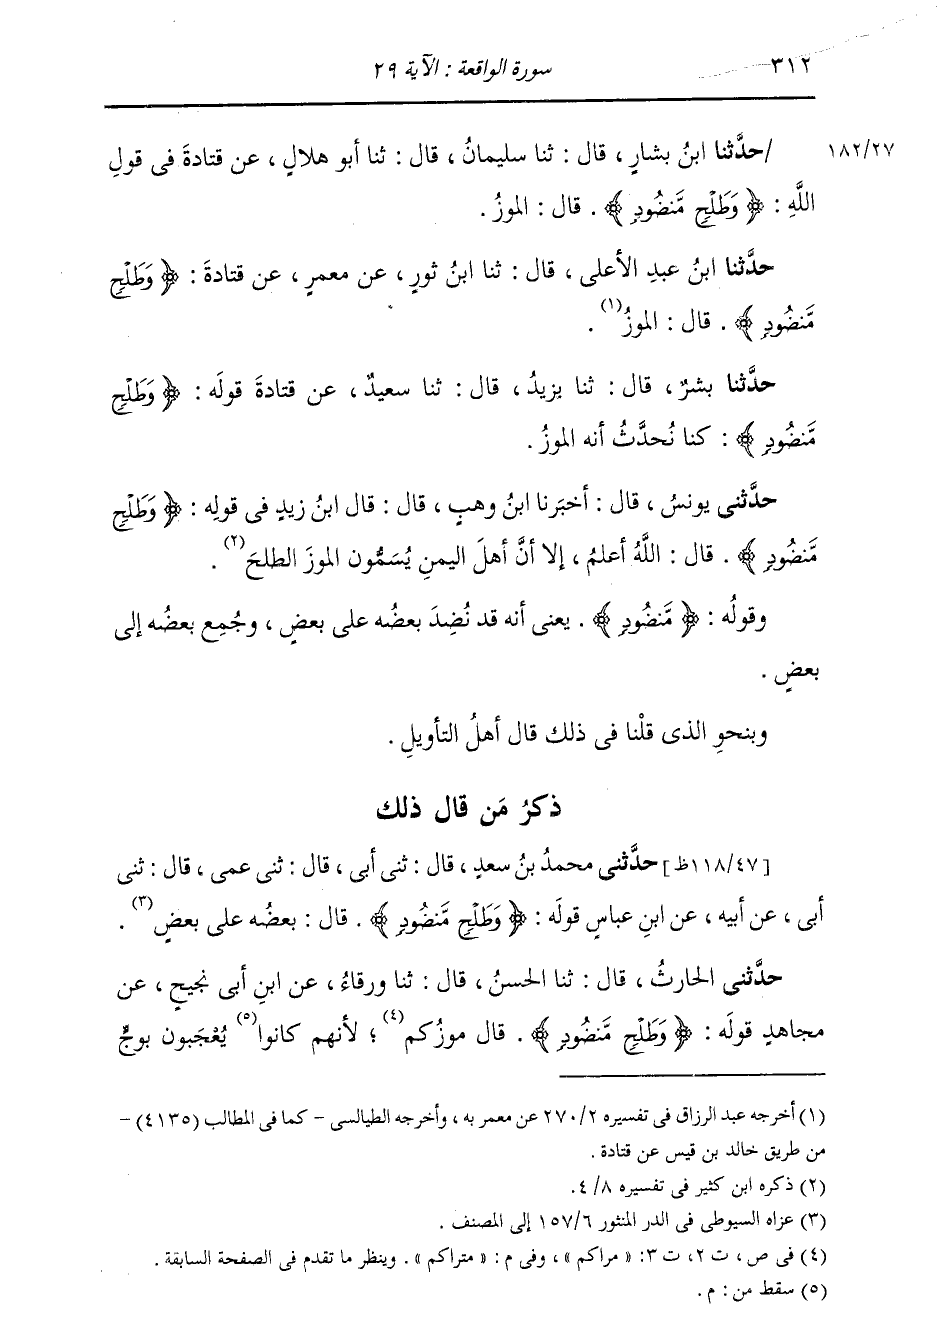 ٣١٢ سورة الواقعة : الآية ٢٩
١٨٢/٢٧ /حدَّثنا ابنُ بشارٍ ، قال : ثنا سليمانُ ، قال : ثنا أبو هلالٍ ، عن قتادةَ فى قولِ
اللَّهِ : ﴿ وَطَلْحٍ مَّنضُودٍ ﴾ . قال : الموزُ .
حدَّثنا ابنُ عبدِ الأعلى ، قال : ثنا ابنُ ثورٍ ، عن معمرٍ ، عن قتادةَ : ﴿ وَطَلْحٍ
مَّنضُودٍ ﴾ . قال : الموزُ(١) .
حدَّثنا بشرٌ ، قال : ثنا يزيدُ ، قال : ثنا سعيدٌ ، عن قتادةَ قولَه : ﴿ وَطَلْحٍ
مَّنضُودٍ ﴾ : كنا نُحدَّثُ أنه الموزُ .
حدَّثنى يونسُ ، قال : أخبَرنا ابنُ وهبٍ ، قال : قال ابنُ زيدٍ فى قولِه : ﴿ وَطَلْحٍ
مَّنضُودٍ ﴾ . قال : اللَّهُ أعلمُ ، إلا أنَّ أهلَ اليمنِ يُسَمُّون الموزَ الطلحَ(٢) .
وقولُه : ﴿ مَّنضُودٍ ﴾ . يعنى أنه قد نُضِدَ بعضُه على بعضٍ ، وجُمِع بعضُه إلى
بعضٍ .
وبنحوِ الذى قلْنا فى ذلك قال أهلُ التأويلِ .
ذكرُ مَن قال ذلك
[١١٨/٤٧ظ] حدَّثنى محمدُ بنُ سعدٍ ، قال : ثنى أبى ، قال : ثنى عمى ، قال : ثنى
أبى ، عن أبيه ، عن ابنِ عباسٍ قولَه : ﴿ وَطَلْحٍ مَّنضُودٍ ﴾ . قال : بعضُه على بعضٍ(٣) .
حدَّثنى الحارثُ ، قال : ثنا الحسنُ ، قال : ثنا ورقاءُ ، عن ابنِ أبى نجيحٍ ، عن
مجاهدٍ قولَه : ﴿ وَطَلْحٍ مَّنضُودٍ ﴾ . قال موزُكم(٤) ؛ لأنهم كانوا(٥) يُعْجَبون بوجٍّ
(١) أخرجه عبد الرزاق فى تفسيره ٢٧٠/٢ عن معمر به ، وأخرجه الطيالسى - كما فى المطالب (٤١٣٥) -
من طريق خالد بن قيس عن قتادة .
(٢) ذكره ابن كثير فى تفسيره ٨/ ٤.
(٣) عزاه السيوطى فى الدر المنثور ١٥٧/٦ إلى المصنف .
(٤) فى ص ، ت ٢، ت ٣: « مراكم » ، وفى م : « متراكم » . وينظر ما تقدم فى الصفحة السابقة .
(٥) سقط من : م .